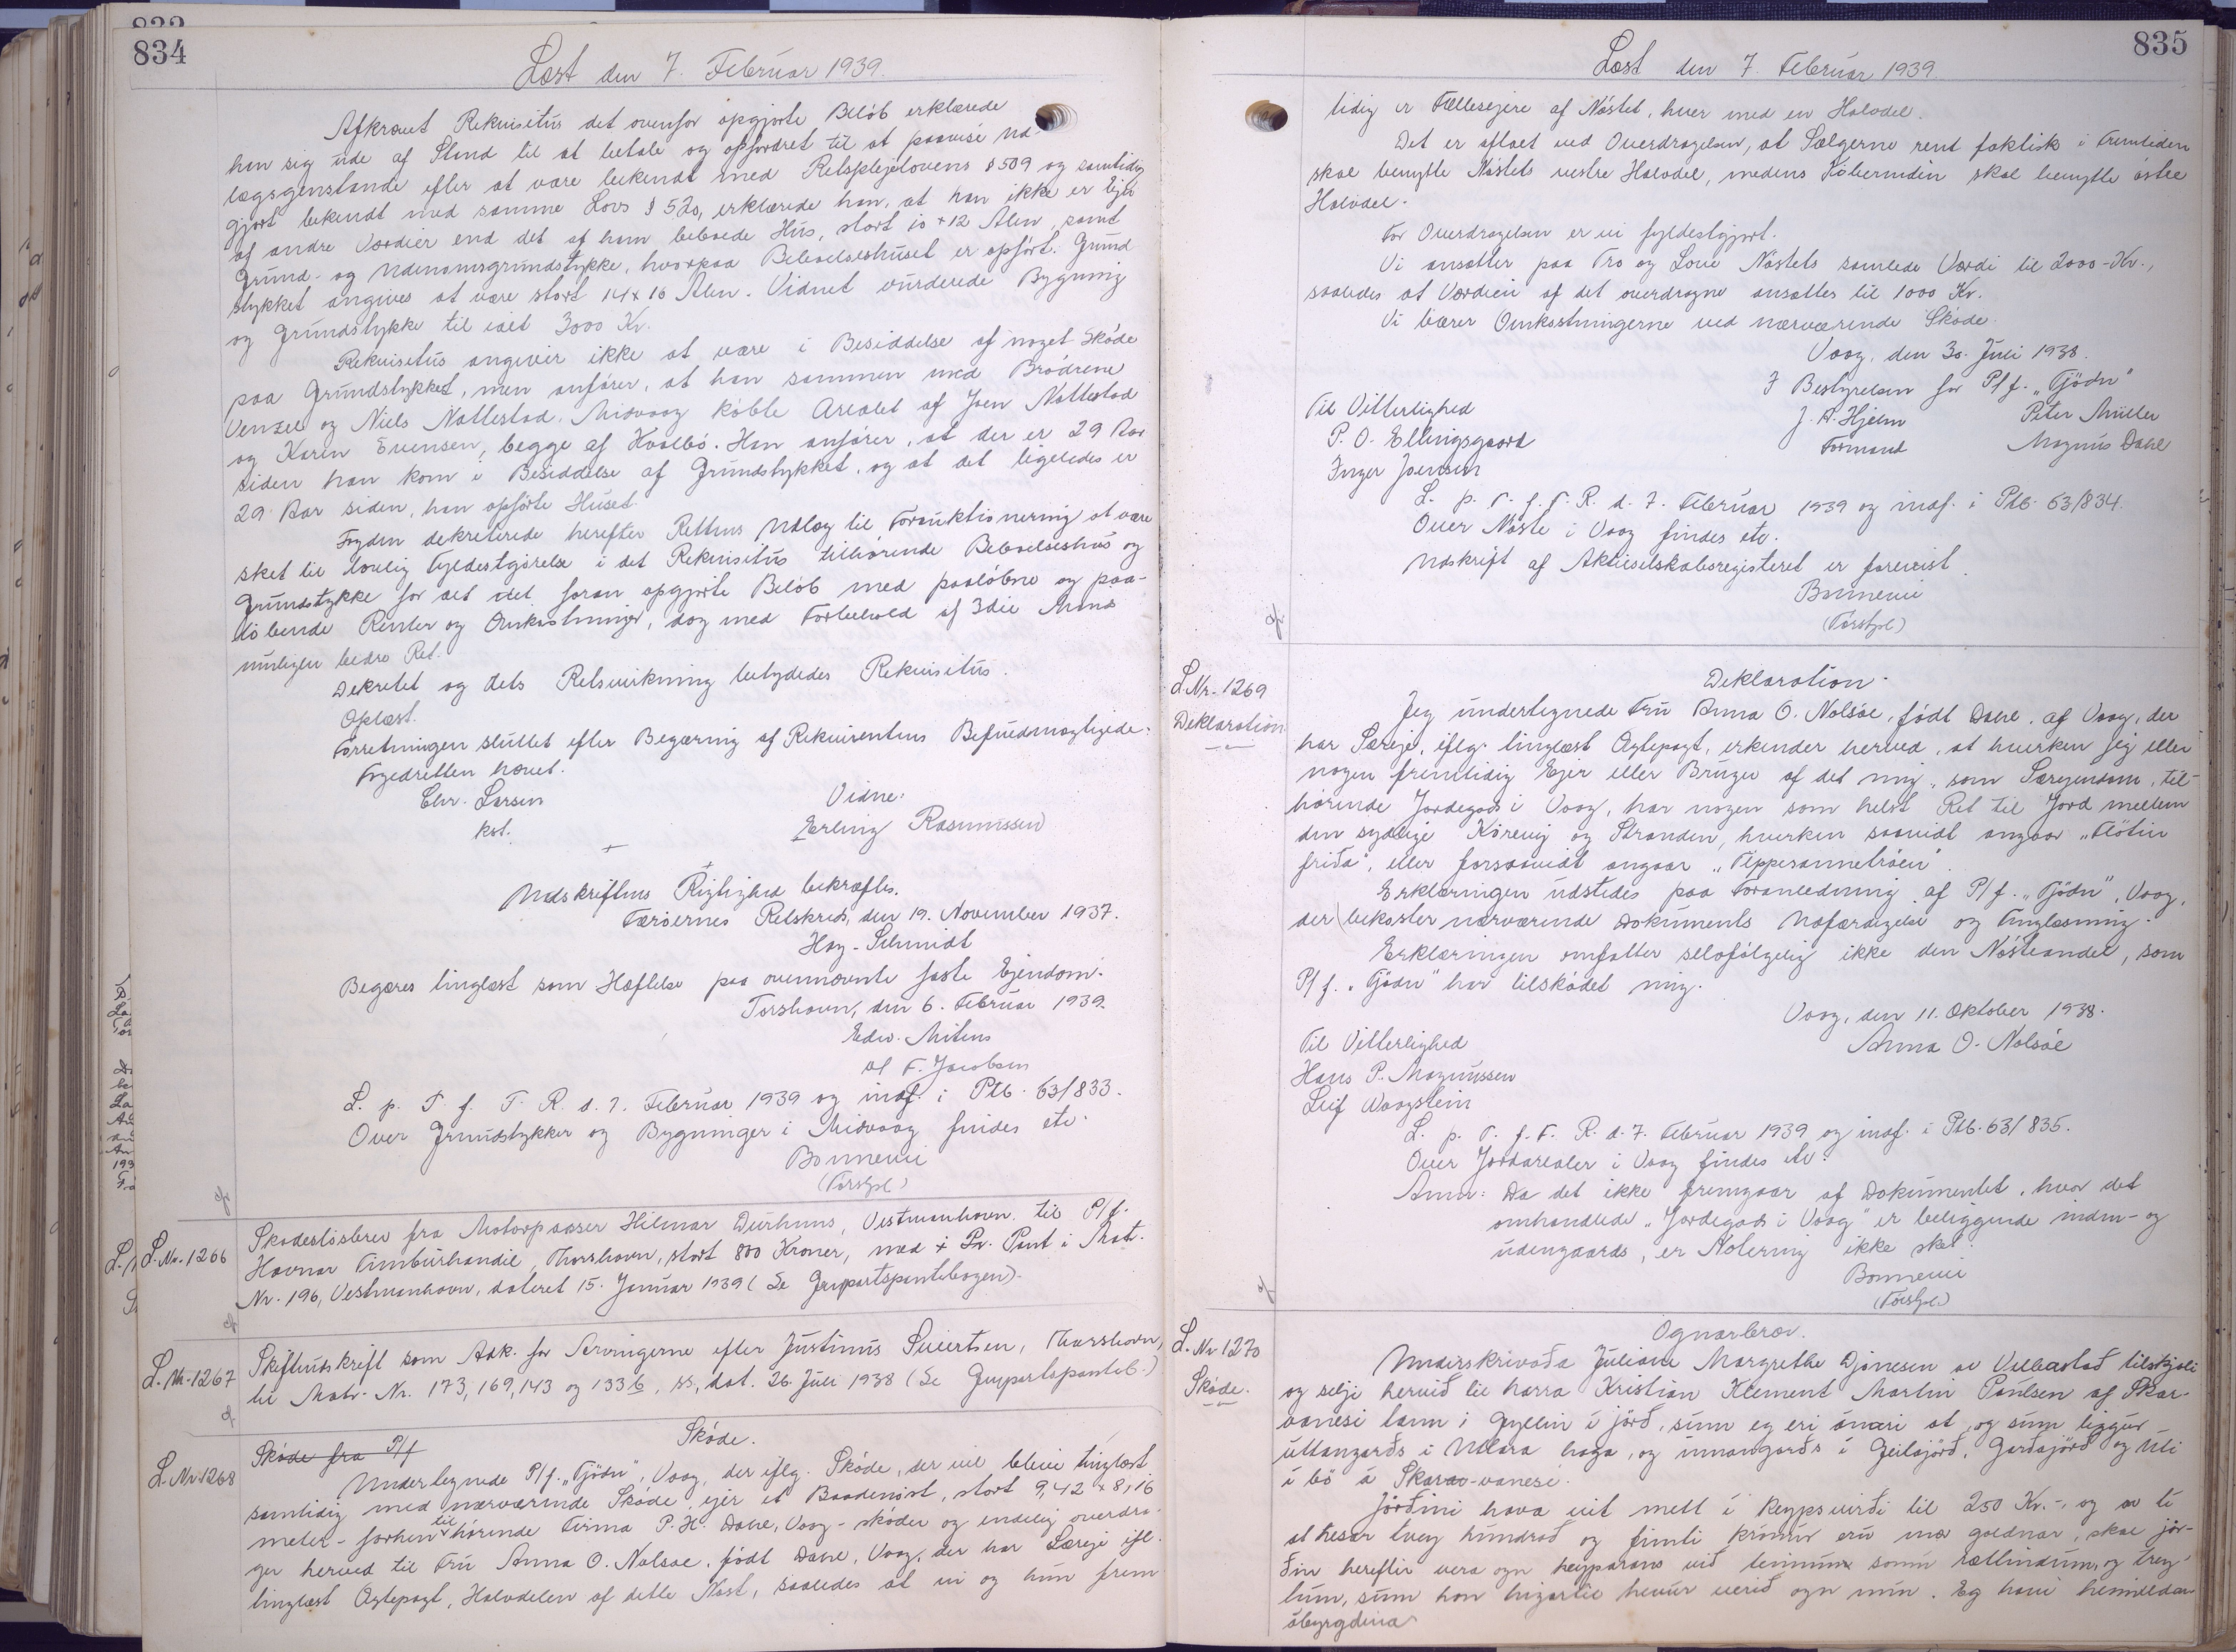 834
Læst den 7. Februar 1939.
Afkrævet Rekvisitus det ovenfor opgjorte Beløb erklærede
han sig ude af Stand til at betale og opfordret til at paavise Ud-
lægsgenstande efter at være bekendt med Retsplejelovens § 509 og samtidig
gjort bekendt med samme Lovs § 520, erklærede han, at han ikke er Ejer
af andre Værdier end det af ham beboede Hus, stort 10 + 12 Alen, samt
Grund- og Udenomsgrundstykke, hvorpaa Beboelseshuset er opført. Grund-
stykket angives at være stort 14 x 16 Alen. Vidnet vurderede Bygning
og Grundstykke til ialt 3000 Kr.
Rekvisitus angiver ikke at være i Besiddelse af noget Skøde
paa Grundstykket, men anfører, at han sammen med Brødrene
Venzel og Niels Nattestad, Midvaag købte Arealet af Joen Nattestad
og Karin Evensen, begge af Hvalbø. Han anfører, at der er 29 Aar
siden han kom i Besiddelse af Grundstykket, og at det ligeledes er
29 Aar siden, han opførte Huset.
Fogden dekreterede herefter Rettens Udlæg til Forauktionering at være
sket til lovlig Fyldestgørelse i det Rekvisitus tilhørende Beboelseshus og
Grundstykke for det foran opgjorte Beløb med paaløbne og paa-
løbende Renter og Omkostninger, dog med Forbehold af 3die Mands
muligen bedre Ret.
Dekretet og dets Retsvirkning betydedes Rekvisitus.
Oplæst.
Forretningen sluttet efter Begæring af Rekvirentens Befuldmægtigede.
Fogedretten hævet.
Chr. Larsen
kst.
Vidne:
Erling Rasmussen
Udskriftens Rigtighed bekræftes.
Færøernes Retskreds, den 19. November 1937.
Høg-Schmidt
Begæres tinglæst som Hæftelse paa ovennævnte faste Ejendom.
Torshavn, den 6. Februar 1939.
Edw. Mitens
v/ F. Jacobsen
L. p. T. f. F. R. d. 7. Februar 1939 og indf. i Ptb. 63/833.
Over Grundstykker og Bygninger i Midvaag findes etc.
Bonnevie
(Forstpl.)
L. Nr. 1266
Skadesløsbrev fra Motorpasser Hilmar Durhuus, Vestmanhavn til P/f.
Havnar Timburhandil, Thorshavn, stort 800 Kroner, med 1. Pr. Pant i Mat.
Nr. 196, Vestmanhavn, dateret 15. Januar 1939 (Se Genpartspantebogen).
L. Nr. 1267
Skifteudskrift som Adk. for Arvingerne efter Justinus Sivertsen, Thorshavn,
til Matr. Nr. 173, 169, 143 og 133 b, ss, dat. 26. Juli 1938 (Se Genpartspanteb.)
L. Nr. 1268
Skøde fra P/f
Skøde.
Undertegnede P/f. "Tjødn", Vaag, der iflg. Skøde, der vil blive tinglæst
samtidig med nærværende Skøde, ejer et Baadenøst, stort 9,42 x 8,16
meter - forhen tilhørende Firma P. H. Dahl, Vaag - skøder og endelig overdra-
ger herved til Fru Anna O. Nolsøe, født Dahl, Vaag, der har Særeje ifl.
tinglæst Ægtepagt, Halvdelen af dette Nøst, saaledes at vi og hun frem-
835
Læst den 7. Februar 1939.
tidig er Fællesejere af Nøstet, hver med en Halvdel.
Det er aftalt ved Overdragelsen, at Sælgerne rent faktisk i Fremtiden
skal benytte Nøstets vestre Halvdel, medens Køberinden skal benytte østre
Halvdel.
For Overdragelsen er vi fyldestgjort.
Vi ansætter paa Tro og Love Nøstets samlede Værdi til 2000-Kr.,
saaledes at Værdien af det overdragne ansættes til 1000 Kr.
Vi bærer Omkostningerne ved nærværende Skøde.
Vaag, den 30. Juli 1938.
I Bestyrelsen for P/f. "Tjødn"
Til Vitterlighed
J. A. Hjelm
Peter Müller
P. O. Ellingsgaard
Formand
Magnus Dahl
Inger Joensen
L. p. T. f. F. R. d. 7. Februar 1939 og indf. i Ptb. 63/834.
Over Nøste i Vaag findes etc.
Udskrift af Aktieselskabsregisteret er forevist.
Bonnevie
(Forstpl.)
L. Nr. 1269
Deklaration
Deklaration.
Jeg undertegnede Fru Anna O. Nolsøe, født Dahl, af Vaag, der
har Særeje, iflg. tinglæst Ægtepagt, erkender herved, at hverken jeg eller
nogen fremtidig Ejer eller Bruger af det mig, som Særejendom, til-
hørende Jordegods i Vaag, har nogen som helst Ret til Jord mellem
den sydlige Kørevej og Stranden, hverken saavidt angaar "Fløtin
fríða", eller forsaavidt angaar "Tippesannetrøen".
Erklæringen udstedes paa Foranledning af P/f. "Tjødn", Vaag,
der bekoster nærværende Dokuments Udfærdigelse og Tinglæsning.
Erklæringen omfatter selvfølgelig ikke den Nøsteandel, som
P/f. "Tjødn" har tilskødet mig.
Vaag, den 11. Oktober 1938.
Til Vitterlighed
Anna O. Nolsøe
Hans P. Magnussen
Leif Waagstein
L. p. T. f. F. R. d. 7. Februar 1939 og indf. i Ptb. 63/835.
Over Jordarealer i Vaag findes etc.
Anm: Da det ikke fremgaar af Dokumentet, hvor det
omhandlede "Jordegods i Vaag" er beliggende inden- og
udengaards, er Notering ikke sket.
Bonnevie
(Forstpl.)
L. Nr 1270
Skøde.
Ognarbrøv.
Undirskrivaða Juliane Margrethe Djónesen av Velbastað tilskjøti
og selji hervið til harra Kristian Klement Martin Paulsen af Skar-
vanesi tann 1 Gyllin í jørð, sum eg eri ánari at, og sum liggur
uttangarðs í Utlara haga, og innangarðs í Geilajørð, Garðajørð og Uti
í bø á Skarvanesi.
Jørðini hava vit mett í keypsvirði til 250 Kr.-, og av tí
at hesar tvey hundrað og fimti krónur eru mær goldnar, skal jør-
ðin hereftir vera ogn keyparans við teimum somu rættindum, og trey-
tum, sum hon higartil hevur verið ogn mín. Eg havi heimildar
ábyrgdina